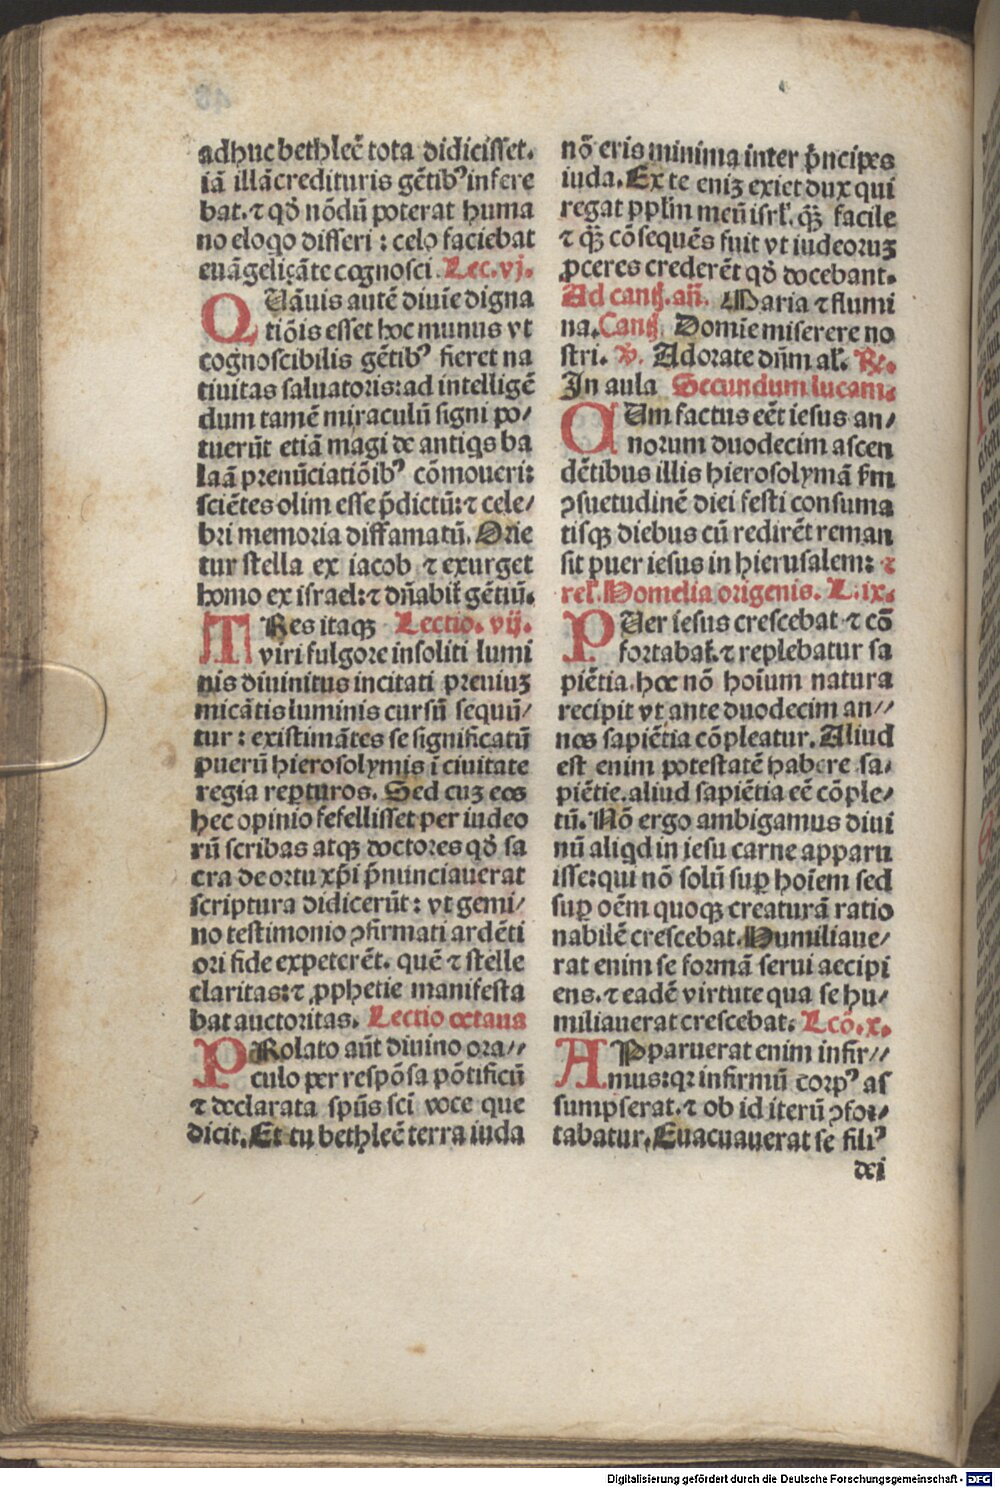 adhuc bethleē tota didicisset.
iā illā credituris gētibꝰ infere
bat. ⁊ qđ nōdū poterat huma
no eloqo disseri : celo faciebat
euāgelicāte cognosci. Lec. vj.
QUāuis autē diuīe digna
tiōis esset hoc munus vt
cognoscibilis gētibꝰ fieret na
tiuitas saluatoris: ad intelligē
dum tamē miraculū signi po/
tuerūt etiā magi de antiqs ba
laā prenūciatiōibꝰ cōmoueri:
sciētes olim esse p̄dictū: ⁊ cele/
bri memoria diffamatū. Orie
tur stella ex iacob ⁊ exurget
homo ex israel: ⁊ dn̄abiť gētiū.
TRes itaqꝫ Lectio. vij.
viri fulgore insoliti lumi
nis diuinitus incitati preuiuꝫ
micātis luminis cursū sequū/
tur : existimātes se significatū
puerū hierosolymis ī ciuitate
regia rep̱turos. Sed cuꝫ eos
hec opinio fefellisset per iudeo
rū scribas atqꝫ doctores qđ sa
cra de ortu xp̄i p̄nunciauerat
scriptura didicerūt : vt gemi/
no testimonio ꝯfirmati ardēti
ori fide expeterēt. quē ⁊ stelle
claritas: ⁊ ꝓphetie manifesta
bat auctoritas. Lectio octaua
PRolato aūt diuino ora//
culo per respōsa pōtificū
⁊ declarata spūs scī voce que
dicit. Et tu bethleē terra iuda
nō eris minima inter p̄ncipes
iuda. Ex te eniꝫ exiet dux qui
regat pplm̄ meū isrł. qꝫ̄ facile
⁊ qꝫ̄ cōsequēs fuit vt iudeoruꝫ
ꝓceres crederēt qđ docebant.
Ad cantꝫ. an̄. Maria ⁊ flumi
na. Cantꝫ Domīe miserere no
stri. ℣. Adorate dn̄m ał. ℟.
In aula Secundum lucam.
CUm factus eēt iesus an/
norum duodecim ascen
dētibus illis hierosolymā ẜm
ꝯsuetudinē diei festi consuma
tisqꝫ diebus cū redirēt reman
sit puer iesus in hierusalem: ⁊
rel'. Homelia origenis. L. ix.
PUer iesus crescebat ⁊ cō
fortabať. ⁊ replebatur sa
piētia. hoc nō hoīum natura
recipit vt ante duodecim an//
nos sapiētia cōpleatur. Aliud
est enim potestatē habere sa/
piētie. aliud sapiētia eē cōple/
tū. Nō ergo ambigamus diui
nū aliqd in iesu carne apparu
isse: qui nō solū suꝑ hoīem sed
suꝑ oēm quoqꝫ creaturā ratio
nabilē crescebat. Humiliaue/
rat enim se formā serui accipi
ens. ⁊ eadē virtute qua se hu/
miliauerat crescebat. Lcō. x.
APparuerat enim infir//
mus: qꝛ infirmū corpꝰ as
sumpserat. ⁊ ob id iterū ꝯfor/
tabatur. Euacuauerat se filiꝰ
dei
Digitalisierung gefördert durch die Deutsche Forschungsgemeinschaft - DFG